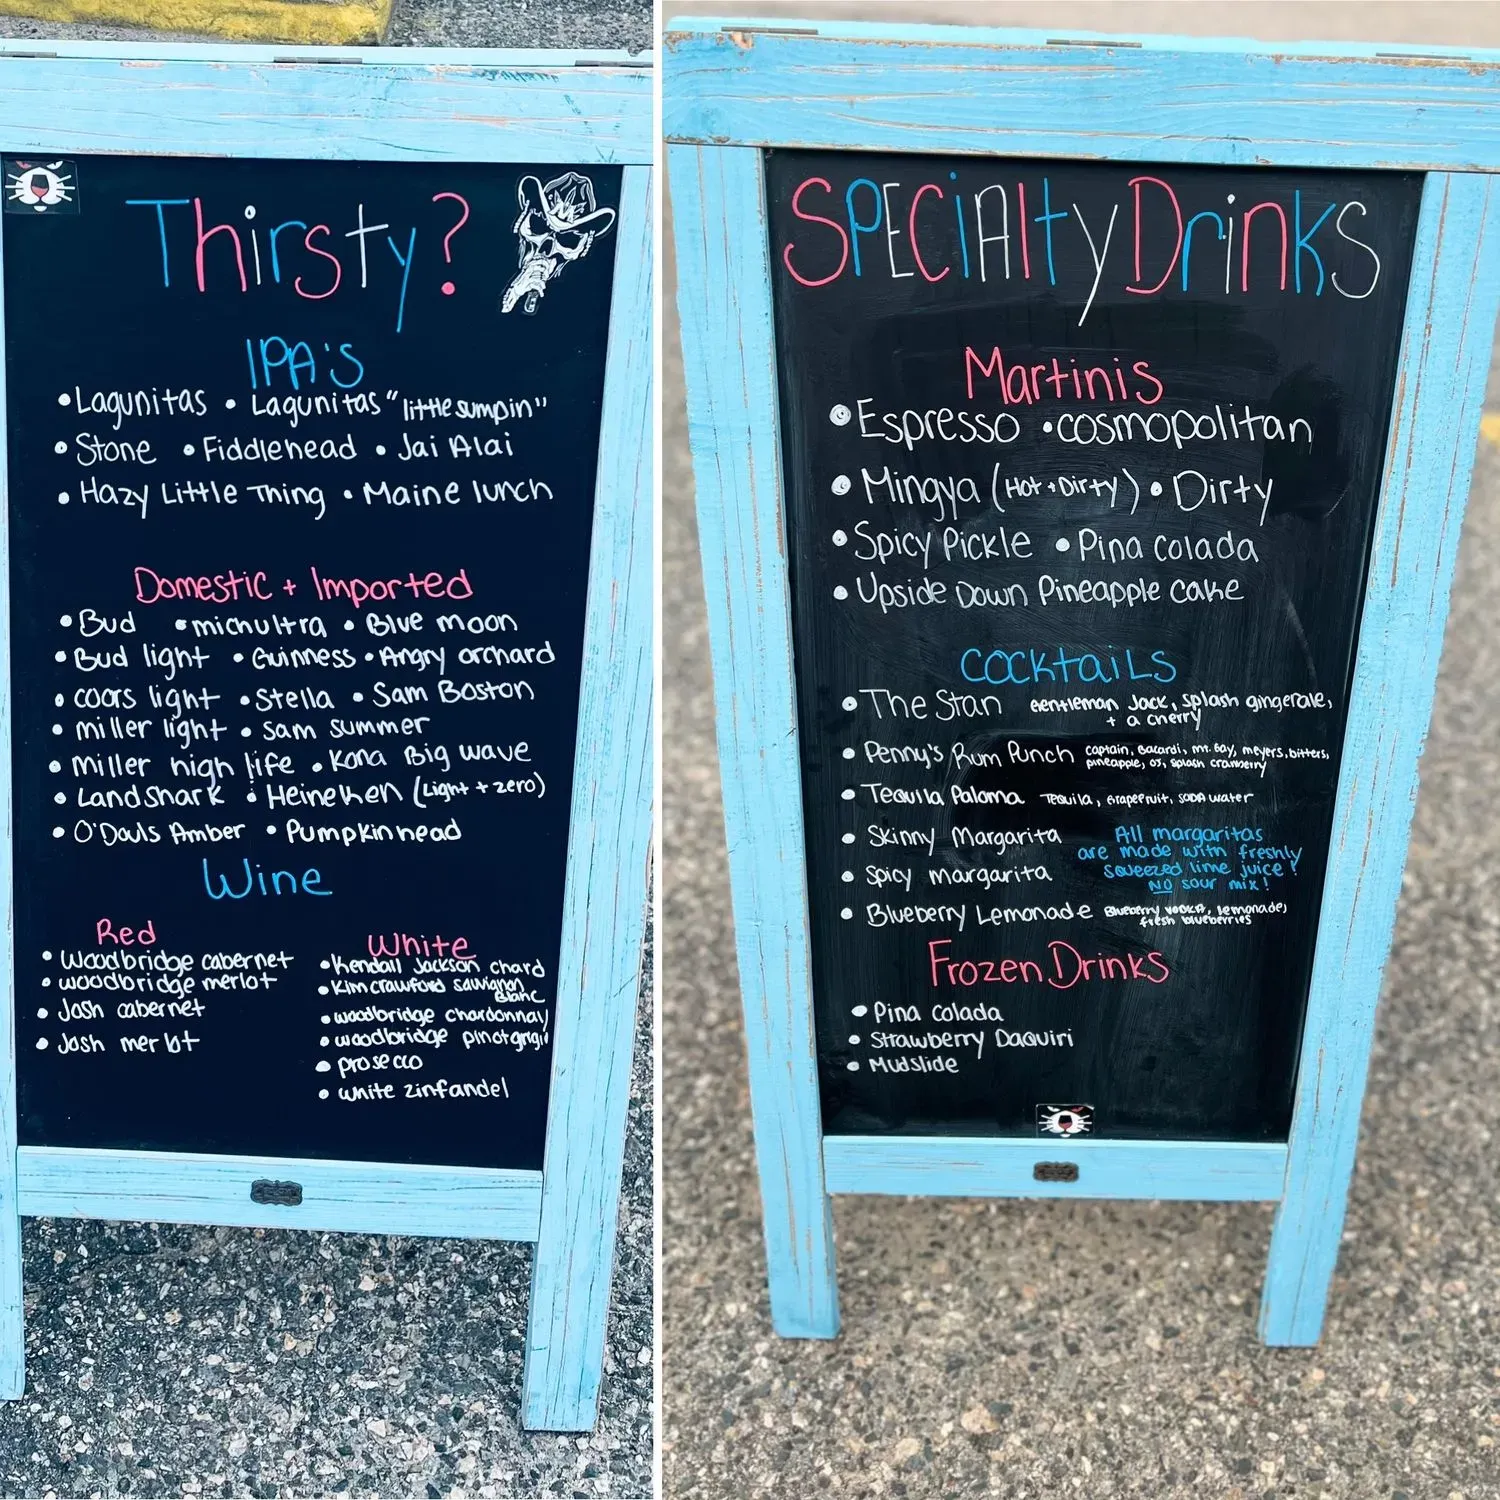 Thirsty?
IPA's
• Lagunitas • Lagunitas "little sumpin"
• Stone • Fiddlehead • Jai Alai
• Hazy Little Thing • Maine lunch
Domestic + Imported
• Bud • Mich ultra • Blue moon
• Bud light • Guinness • Angry orchard
• coors light • Stella • Sam Boston
• miller light • Sam summer
• miller high life • Kona Big wave
• Landshark • Heineken (Light + zero)
• O'Douls Amber • Pumpkinhead
Wine
Red
• Woodbridge cabernet
• woodbridge merlot
• Josh cabernet
• Josh merlot
White
• Kendall Jackson chard
• Kim crawford sauvignon
Blanc
• woodbridge chardonnay
• woodbridge pinot grigio
• prosecco
• white zinfandel
SPECiAlty Drinks
Martinis
• Espresso • cosmopolitan
• Mingya (Hot + Dirty) • Dirty
• Spicy Pickle • Pina colada
• Upside Down Pineapple cake
COCKtaiLS
• The Stan Gentleman Jack, splash gingerale,
+ a cherry
• Penny's Rum Punch captain, Bacardi, mt. Bay, meyers, bitters,
pineapple, OJ, splash cranberry
• Tequila Paloma Tequila, Grapefruit, SODA water
• Skinny Margarita
• Spicy margarita
All margaritas
are made with freshly
squeezed lime juice!
NO sour mix!
• Blueberry Lemonade Blueberry vodka, lemonade,
fresh blueberries
Frozen Drinks
• Pina colada
• Strawberry Daquiri
• Mudslide